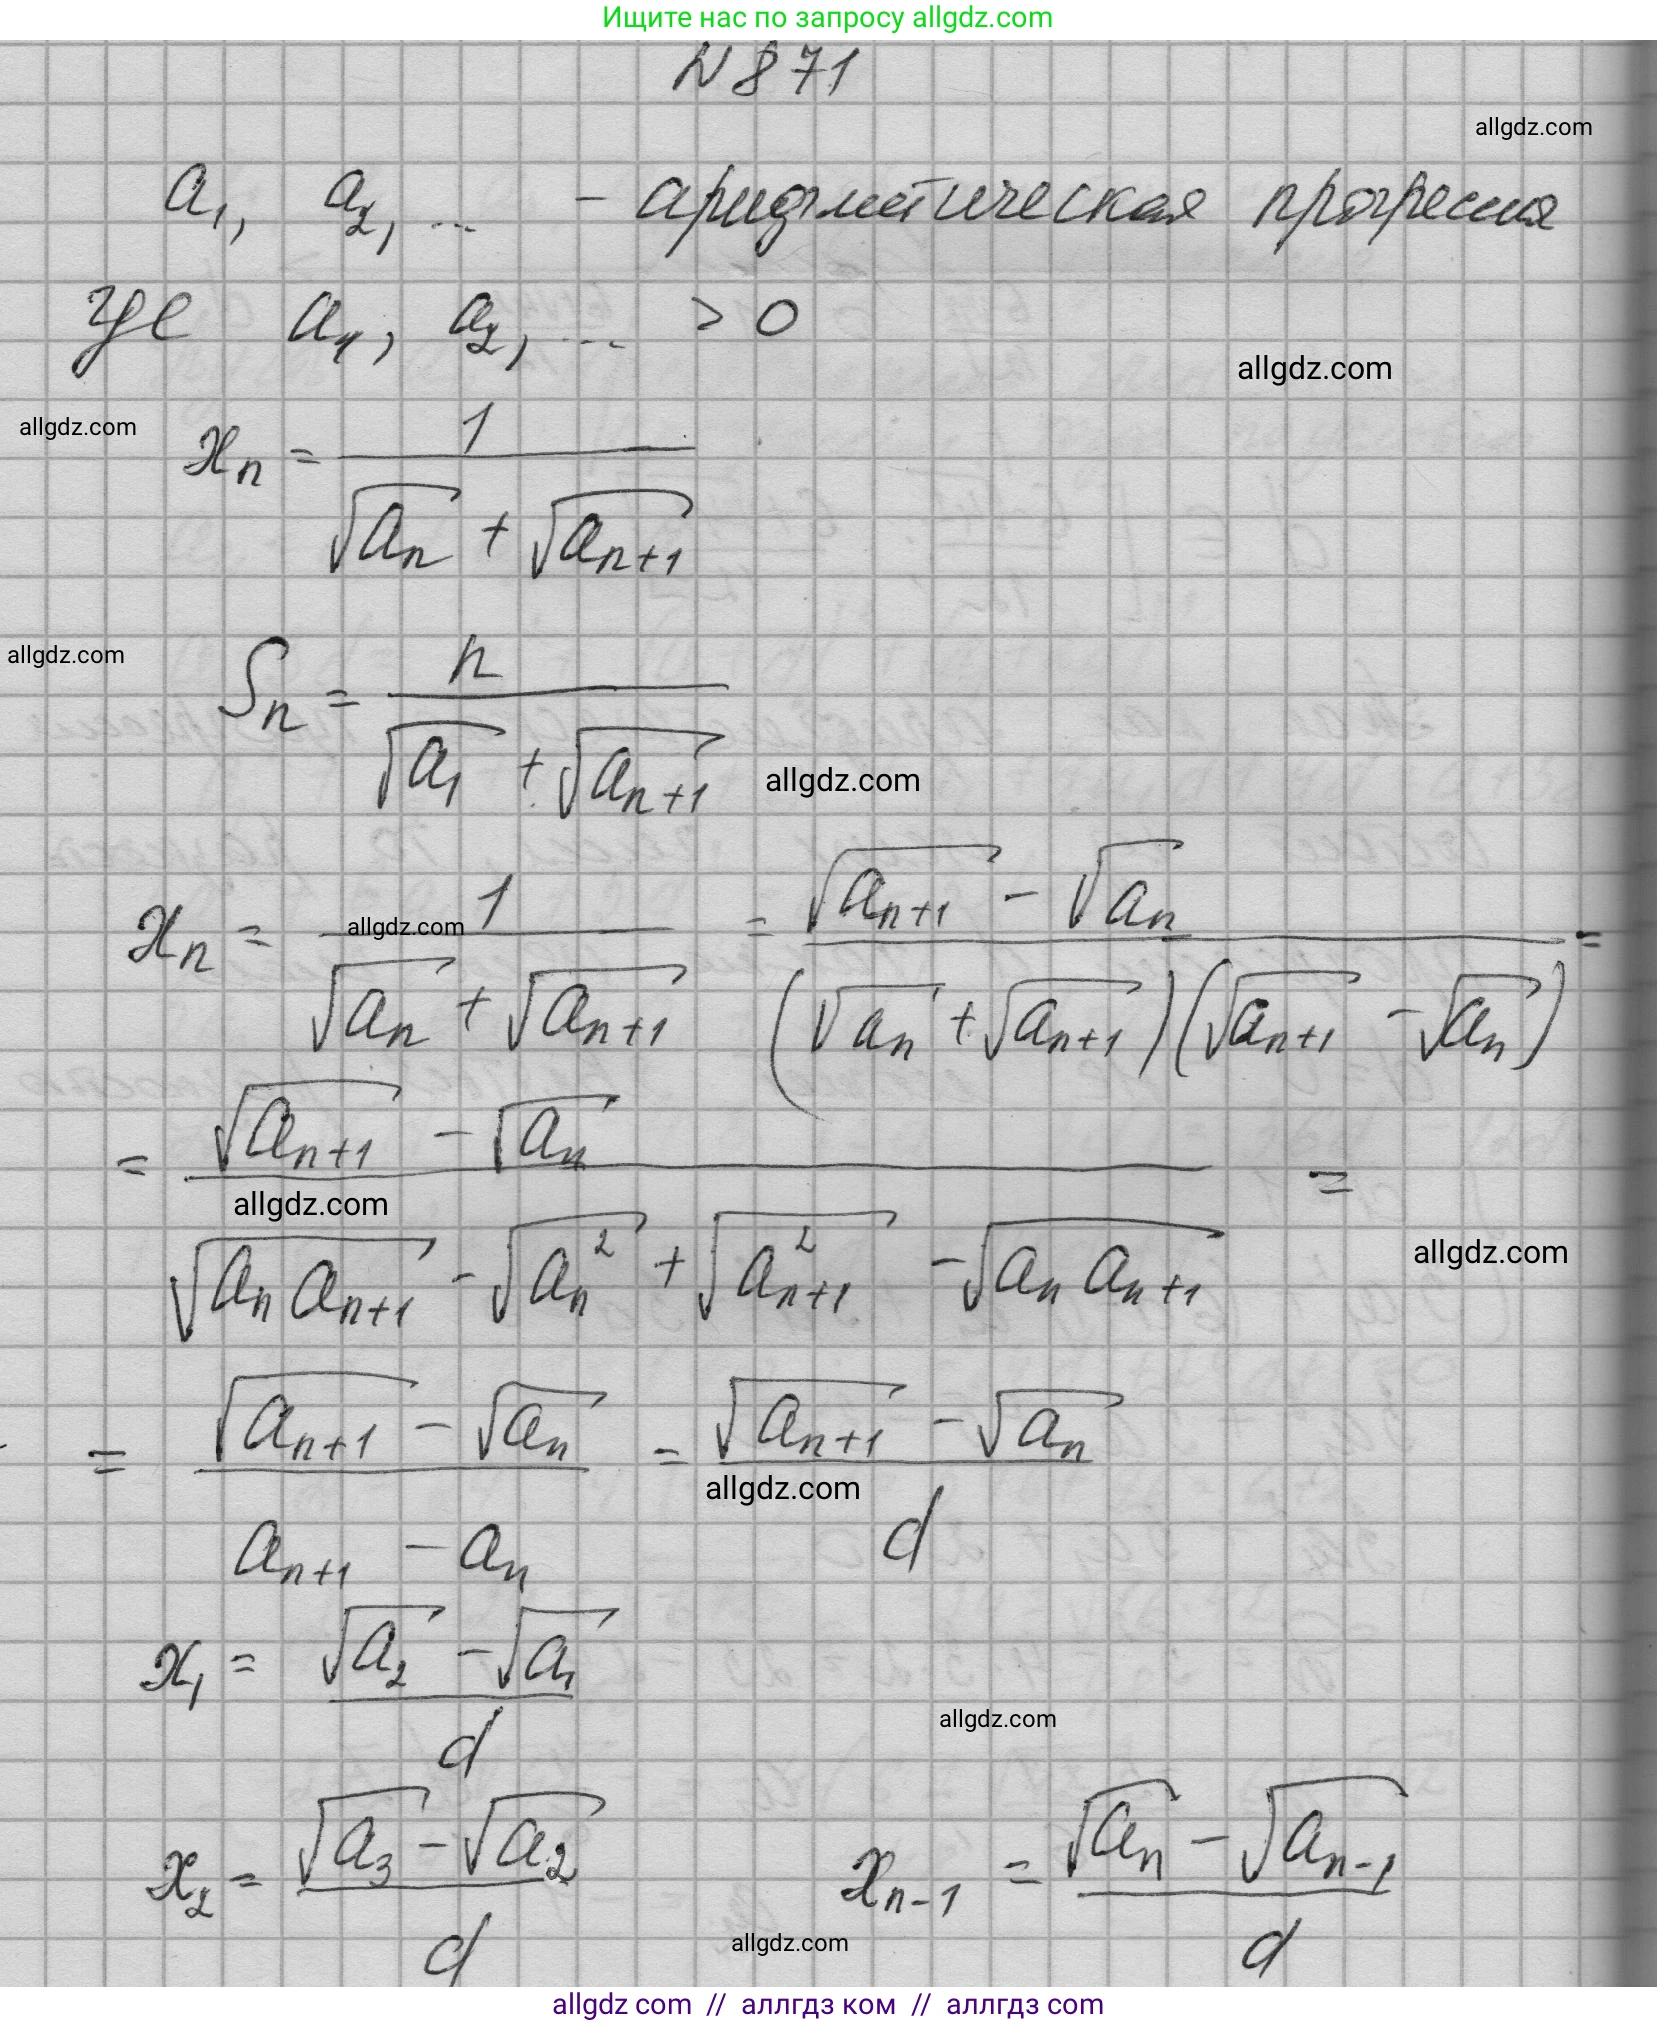 Ищите нас по запросу allgdz.com
N 871
allgdz.com
a₁, a₂, ... - арифметическая прогрессия
где a₁, a₂, ... > 0
allgdz.com
allgdz.com
xₙ = 1 / (√aₙ + √aₙ₊₁)
allgdz.com
Sₙ = n / (√a₁ + √aₙ₊₁)
allgdz.com
xₙ = 1 / (√aₙ + √aₙ₊₁) = (√aₙ₊₁ - √aₙ) / ((√aₙ + √aₙ₊₁)(√aₙ₊₁ - √aₙ)) =
allgdz.com
= (√aₙ₊₁ - √aₙ) / (√(aₙaₙ₊₁) - √(aₙ²) + √(aₙ₊₁²) - √(aₙaₙ₊₁)) =
allgdz.com
allgdz.com
= (√aₙ₊₁ - √aₙ) / (aₙ₊₁ - aₙ) = (√aₙ₊₁ - √aₙ) / d
allgdz.com
x₁ = (√a₂ - √a₁) / d
allgdz.com
x₂ = (√a₃ - √a₂) / d xₙ₋₁ = (√aₙ - √aₙ₋₁) / d
allgdz.com
allgdz com // аллгдз ком // аллгдз com